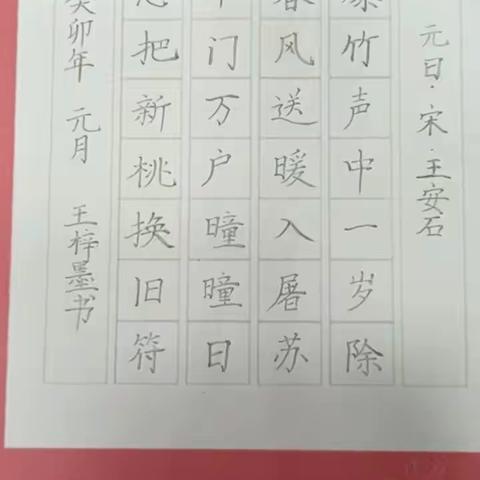 元日·宋·王安石
爆竹声中一岁除
春风送暖入屠苏
门万户曈曈日
把新桃换旧符
癸卯年 元月 王梓墨书